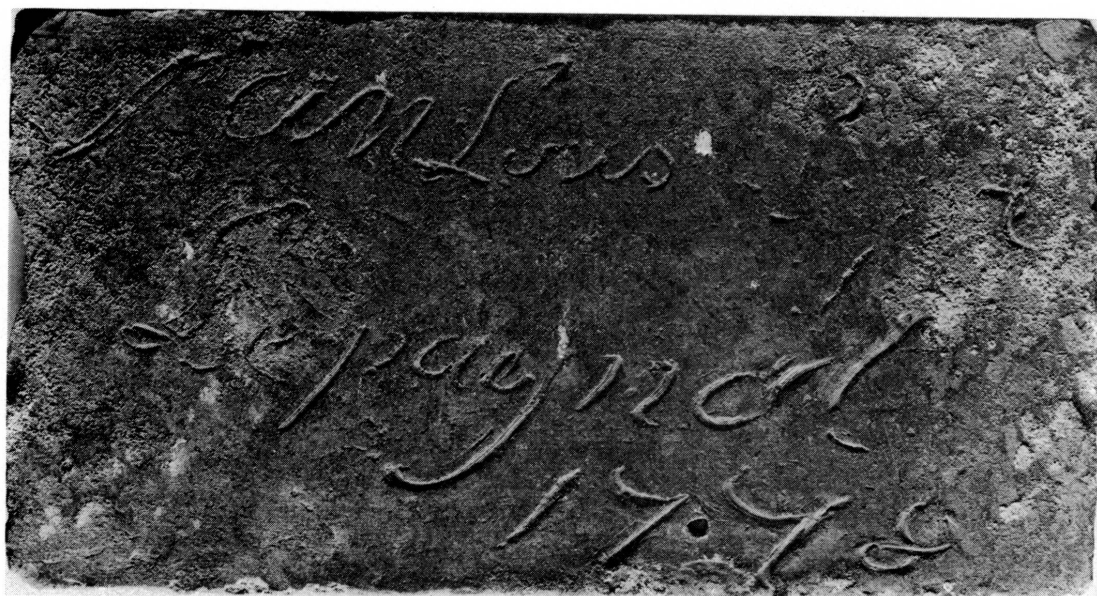 Jan Lous
Lepaynol
1798